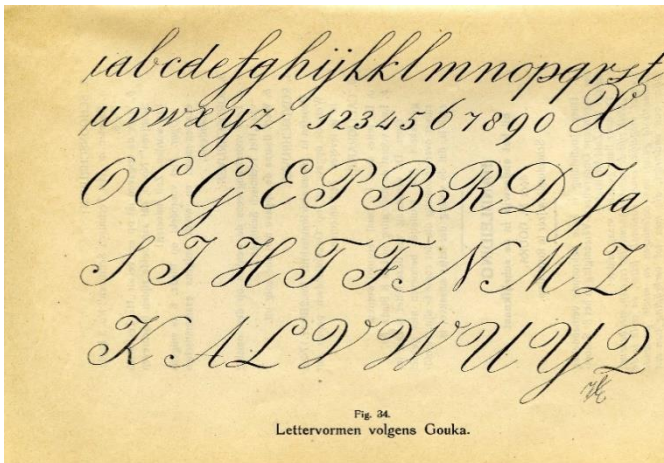 iabcdefghijkklmnopqrst
uvwxyz 1234567890 X
O C G E P B R D Ja
S I H T F N M Z
K A L V W U Y Q
Fig. 34.
Lettervormen volgens Gouka.